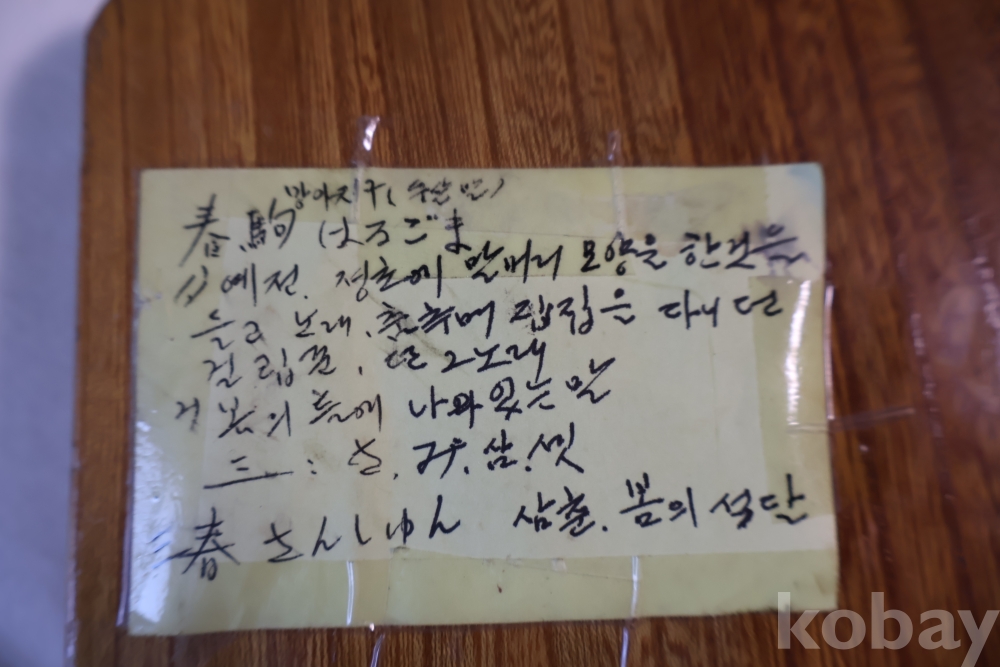 망아지 구(
春駒 はるごま
예전. 정초에 말머리 모양을 한것을
들고 노래, 춤추며 집집을 다니던
걸립꾼, 또 그노래
봄의 들에 나와 있는 말
三 : 삼. 셋
春 さんしゅん 삼춘. 봄의 석달
kobay